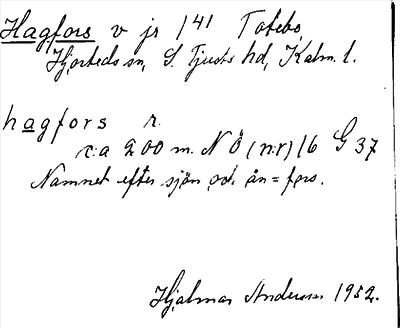 Hagfors v jr 141 Totebo,
Hjorteds sn, S. Tjusts hd, Kalm. l.
hagfors r.
c:a 200 m. NÖ (nr) 16 G 37
Namnet efter sjön och ån = fors.
Hjalmar Anderson 1952.